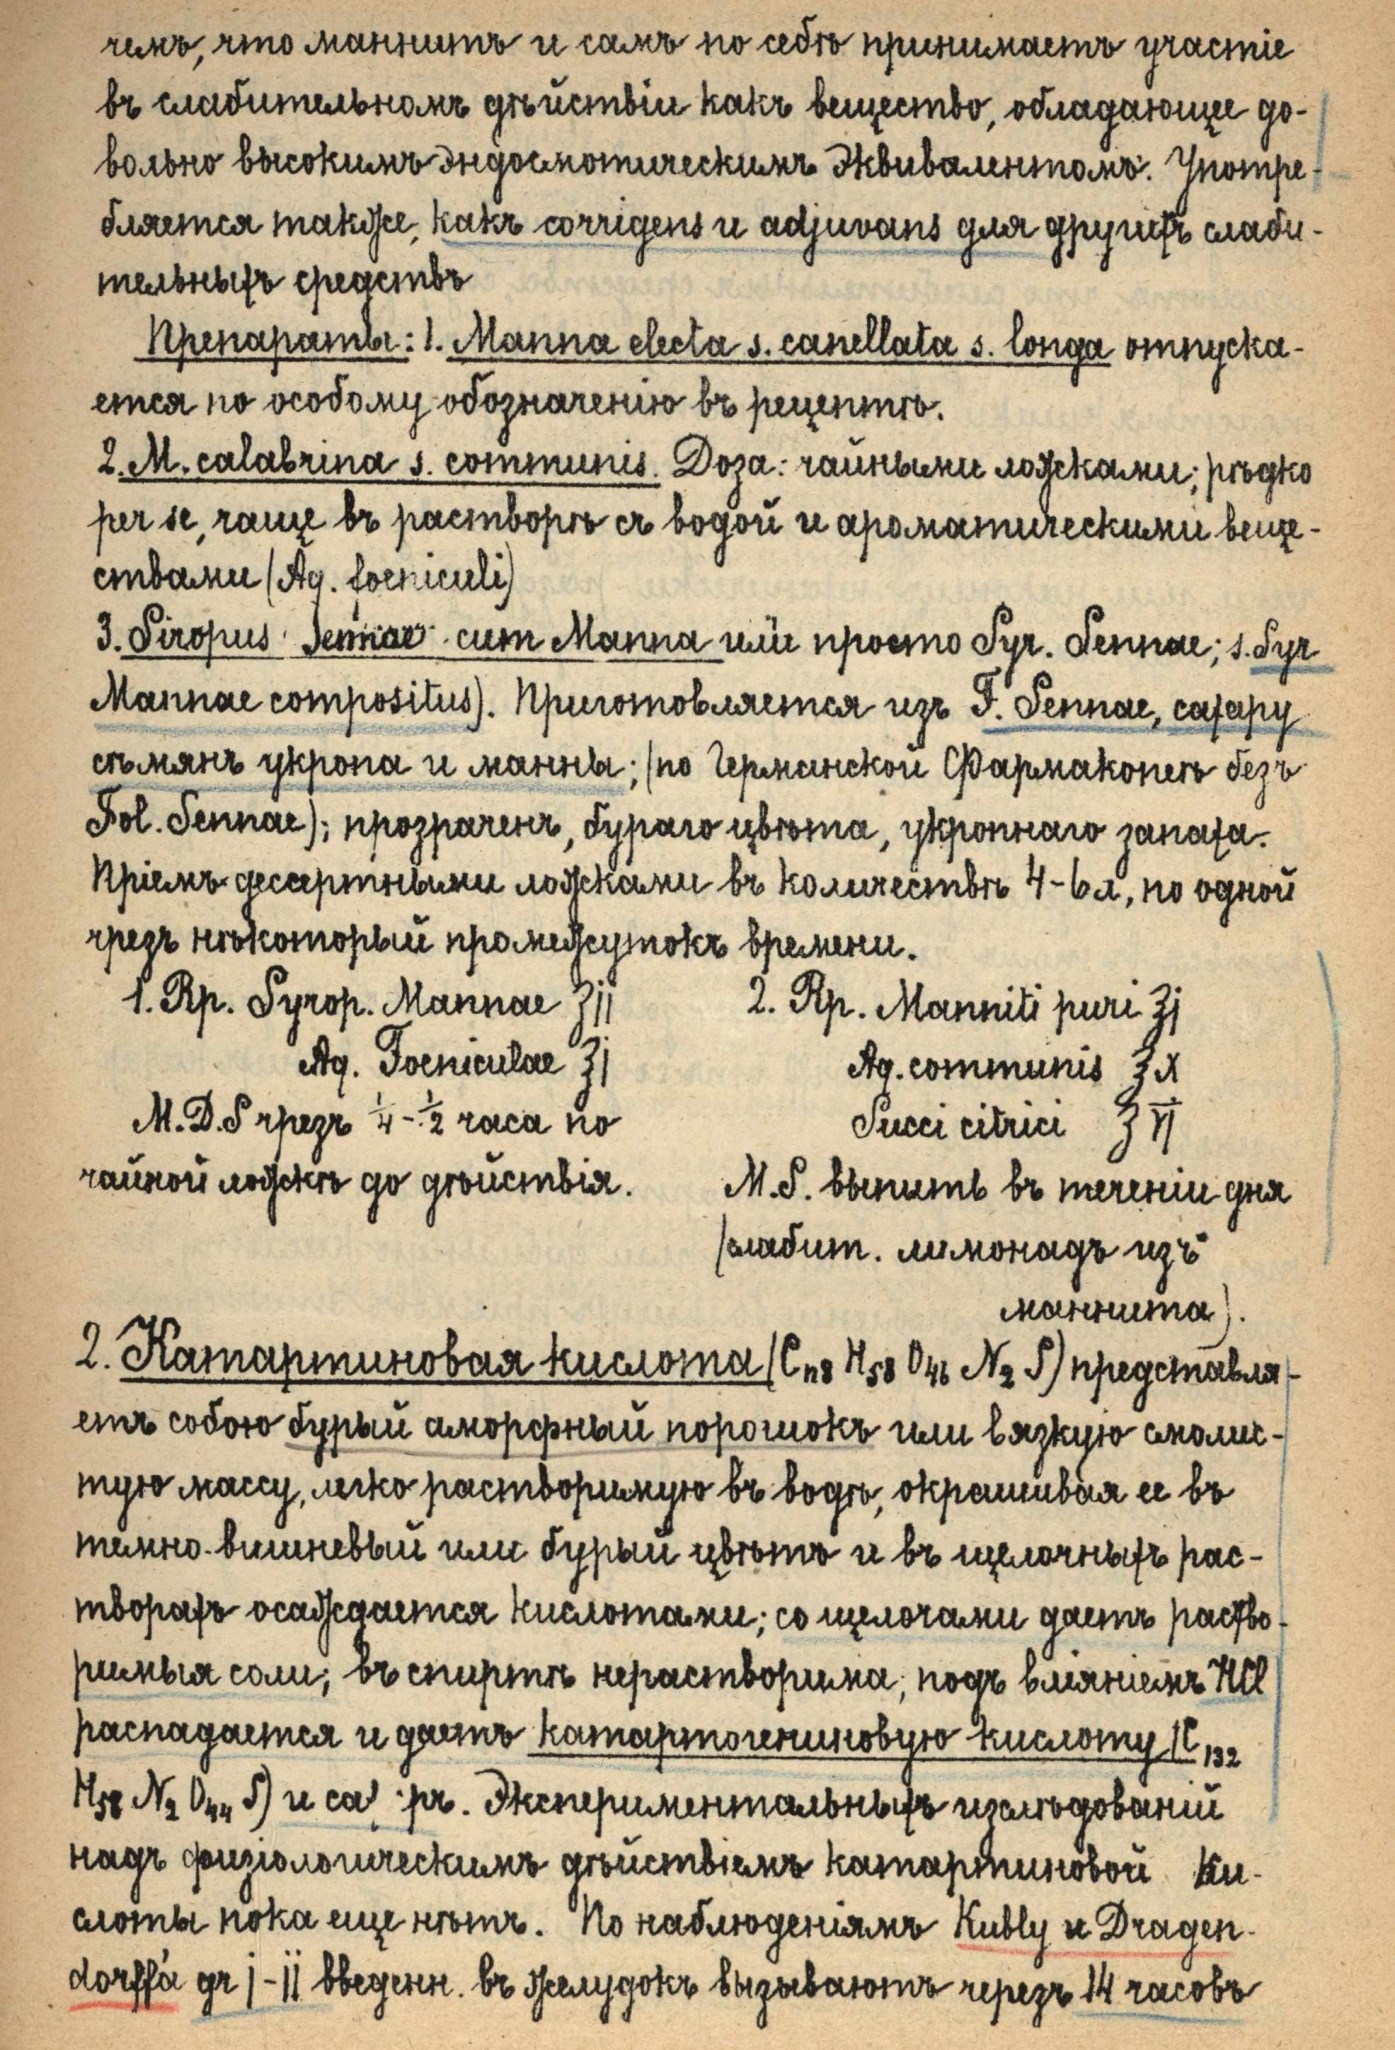 чемъ, что маннитъ и самъ по себѣ принимаетъ участіе
въ слабительномъ дѣйствіи какъ вещество, обладающее до-
вольно высокимъ эндосмотическимъ эквивалентомъ. Употре-
бляется также, какъ corrigens и adjuvans для другихъ слаби-
тельныхъ средствъ
Препараты: 1. Manna electa s. canellata s. longa отпуска-
ется по особому обозначенію въ рецептѣ.
2. M. calabrina s. communis. Доза: чайными ложками; рѣдко
per se, чаще въ растворѣ съ водой и ароматическими веще-
ствами (Aq. foeniculi)
3. Siropus Sennae cum Manna или просто Syr. Sennae; s. Syr
Mannae compositus). Приготовляется изъ F. Sennae, сахару
сѣмянъ укропа и манны; (по Германской Фармакопеѣ безъ
Fol. Sennae); прозраченъ, бураго цвѣта, укропнаго запаха.
Пріемъ дессертными ложками въ количествѣ 4-6 л, по одной
чрезъ нѣкоторый промежутокъ времени.
1. Rp. Syrop. Mannae ʒii
Aq. Foeniculae ʒi
M.D.S чрезъ 1/4-1/2 часа по
чайной ложкѣ до дѣйствія.
2. Rp. Manniti puri ℥i
Aq. communis ℥x
Succi citrici ʒvi
M.S. выпить въ теченіи дня
(слабит. лимонадъ изъ
маннита).
2. Катартиновая кислота (C n8 H58 O46 N2 S) представля-
етъ собою бурый аморфный порошокъ или вязкую смолис-
тую массу, легко растворимую въ водѣ, окрашивая ее въ
темно-вишневый или бурый цвѣтъ и въ щелочныхъ рас-
творахъ осаждается кислотами; со щелочами даетъ раство-
римыя соли; въ спиртѣ нерастворима; подъ вліяніемъ HCl
распадается и даетъ катартогениновую кислоту (C132
H58 N2 O44 S) и сахаръ. Экспериментальныхъ изслѣдованій
надъ физіологическимъ дѣйствіемъ катартиновой ки-
слоты пока еще нѣтъ. По наблюденіямъ Kubly и Dragen-
dorffa gr i-ii введенн. въ желудокъ вызываютъ черезъ 14 часовъ